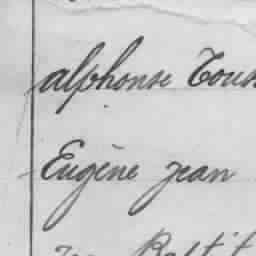 alphonse Tous
Eugène jean